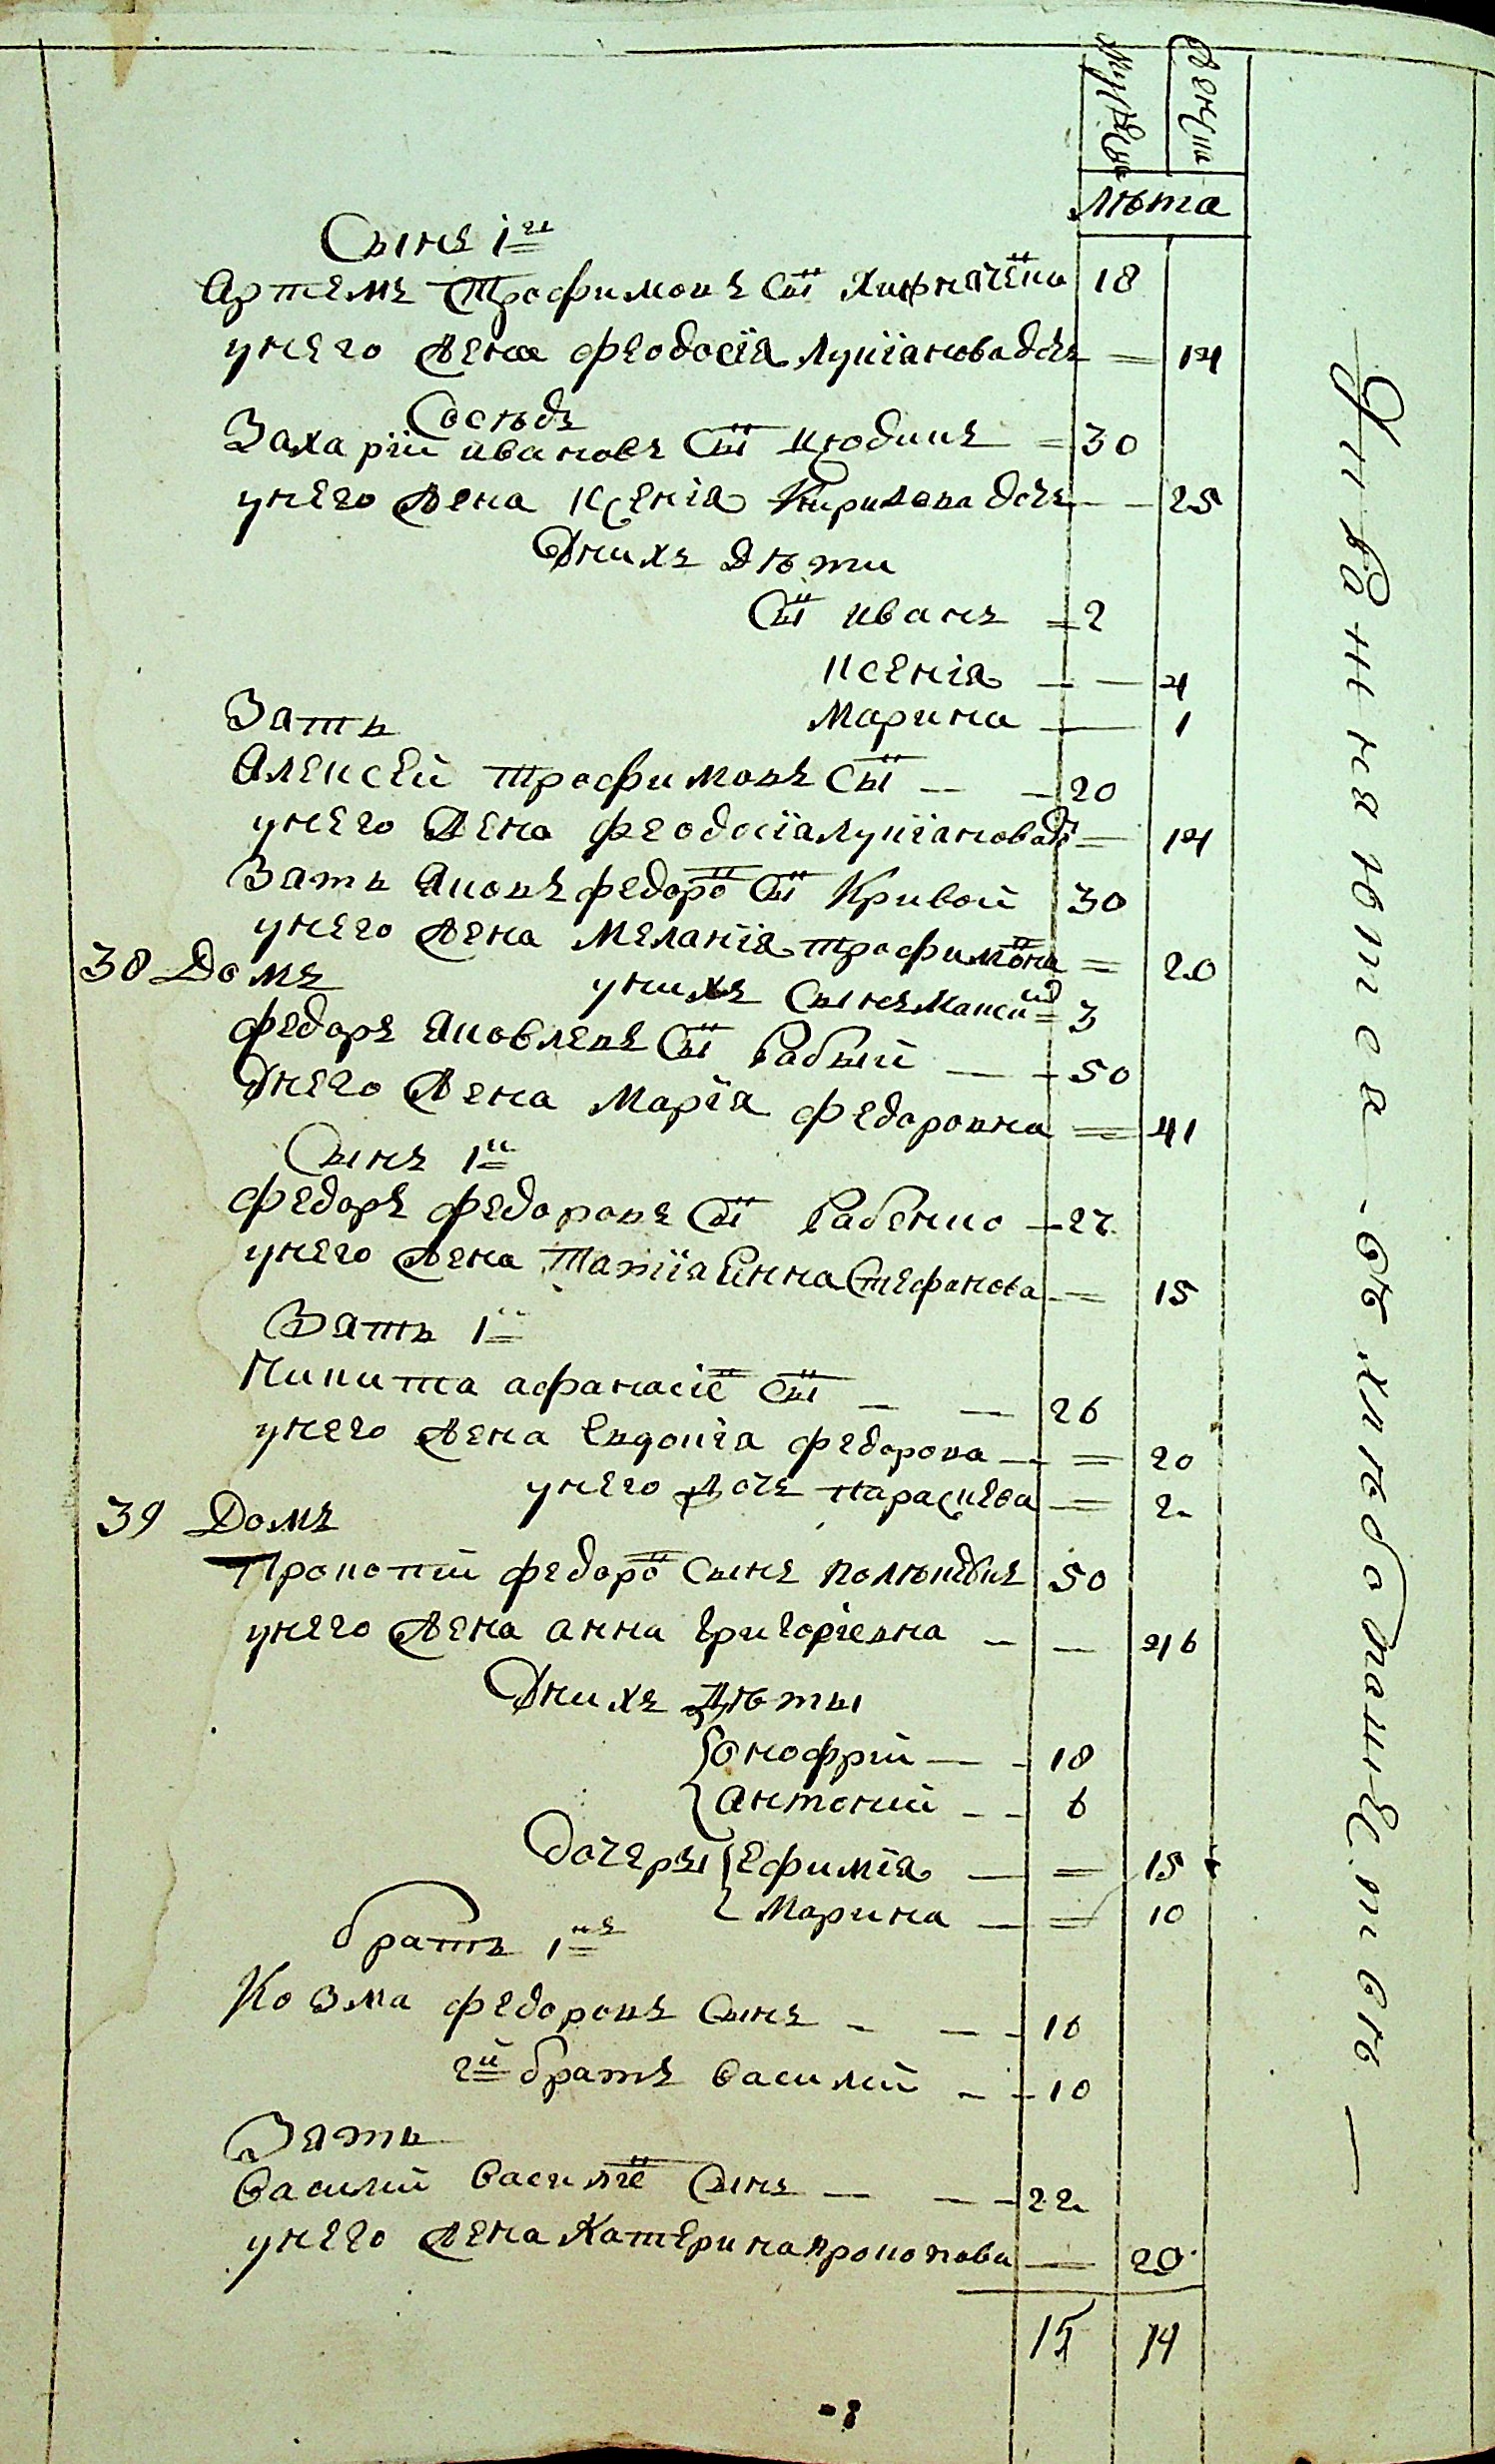 мужеск
женск
лѣта
Сынъ 1й
Артемъ Трофимовъ сы̄н
18
унего жена Феодосїя Лукїанова дочь = 14
Сосѣдъ
Захарїй Ивановъ сы̄н = 30
унего жена Ксенїя Кирилова дочь — — 25
Унихъ дѣти
сы̄н Иванъ = 2
Ксенїя — — 4
Марина — 1
Зять
Алексѣй Трофимовъ сы̄н — — 20
унего жена Феодосїя Лукїанова = 14
Зять Яковъ Федоро̄в сы̄н Кривой 30
унего жена Меланїя Трофимо̄вна = 20
унихъ сынъ Макси = 3
38 Домъ
Федоръ Яковлевъ сы̄н Рабый — 50
Унего жена Марїя Федоровна = 41
Сынъ 1й
Федоръ Федоровъ сы̄н Рабенко — 27
унего жена Татїянна Стефанова — = 15
Зять 1й
Никита Афанасїе̄в сы̄н — — 26
унего жена Евдокїя Федорова — = 20
унего дочь Параскева — = 2
39 Домъ
Прокопїй Федоро̄в сынъ 50
унего жена Анна Григорїевна — — 46
Унихъ дѣты
Онофрїй — — 18
Антонїй — — 6
дочеры Ефимїя — = 15
Марина — = 10
братъ 1нъ
Козма Федоровъ сынъ — — — 16
2й братъ Василїй — — 10
Зять
Василїй Василїе̄в сынъ — — — 22
унего жена Катерина Прокопова — 20
15 14
Упражняются въ хлѣбопашествѣ —